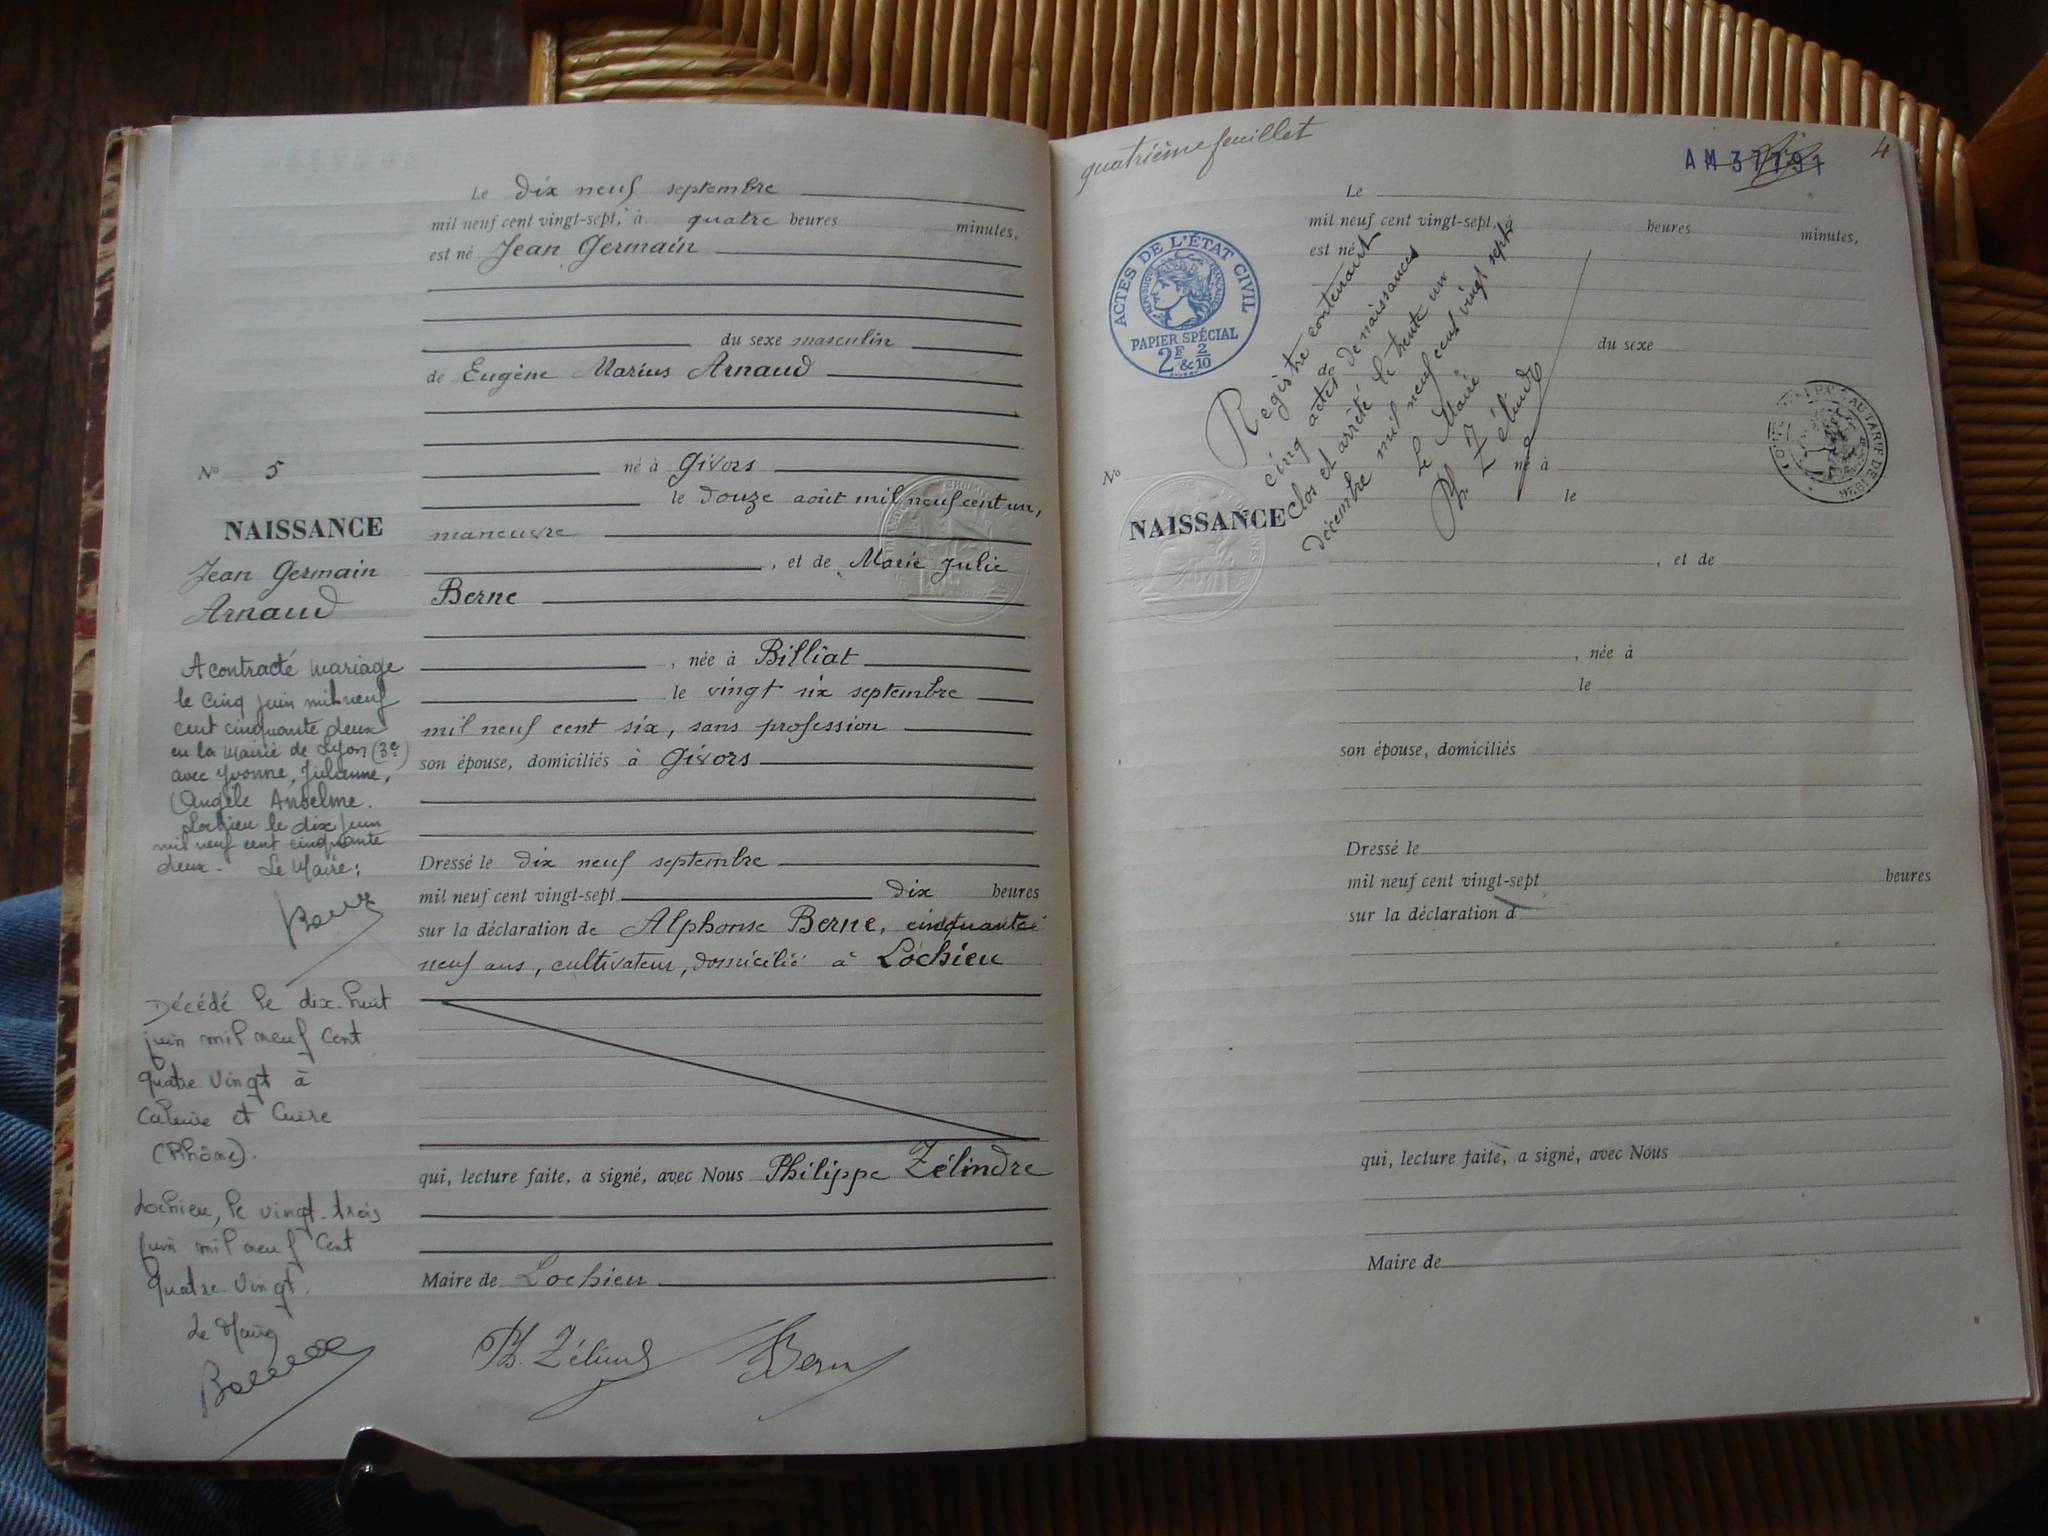 Le dix neuf septembre
mil neuf cent vingt-sept, à quatre heures minutes,
est né Jean Germain
du sexe masculin
de Eugène Marius Arnaud
né à Givors
le douze août mil neuf cent un,
maneuvre
, et de Marie Julie
Berne
, née à Billiat
le vingt six septembre
mil neuf cent six, sans profession
son épouse, domiciliés à Givors
Dressé le dix neuf septembre
mil neuf cent vingt-sept dix heures
sur la déclaration de Alphonse Berne, cinquante
neuf ans, cultivateur, domicilié à Lochieu
qui, lecture faite, a signé, avec Nous Philippe Zélindre
Maire de Lochieu
Ph. Zélindre Berne
No 5
NAISSANCE
Jean Germain
Arnaud
A contracté mariage
le cinq juin mil neuf
cent cinquante deux
en la Mairie de Lyon (3e)
avec Yvonne, Julienne,
Angèle Anselme.
Lochieu le dix juin
mil neuf cent cinquante
deux. Le Maire:
Décédé le dix-huit
juin mil neuf cent
quatre vingt à
Caluire et Cuire
(Rhône).
Lochieu, le vingt-trois
juin mil neuf cent
quatre-vingt.
Le Maire
quatrième feuillet
AM37791
4
ACTES DE L'ÉTAT CIVIL
RÉPUBLIQUE FRANÇAISE
PAPIER SPÉCIAL
2F & 2/10
Le
mil neuf cent vingt-sept, à heures minutes,
est né
du sexe
de
No
né à
le
NAISSANCE
, et de
, née à
le
son épouse, domiciliés
Dressé le
mil neuf cent vingt-sept heures
sur la déclaration d
qui, lecture faite, a signé, avec Nous
Maire de
Registre contenant
cinq actes de naissances
clos et arrêté le trente un
décembre mil neuf cent vingt sept
Le Maire
Ph. Zélindre